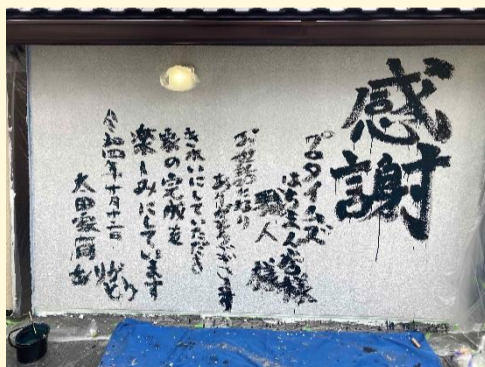 感謝
プロタイムズ
はちまん店様
職人様
お世話になり
ありがとうございます
きれいにしていただき
家の完成を
楽しみにしています
令和四年十月十二日
太田家